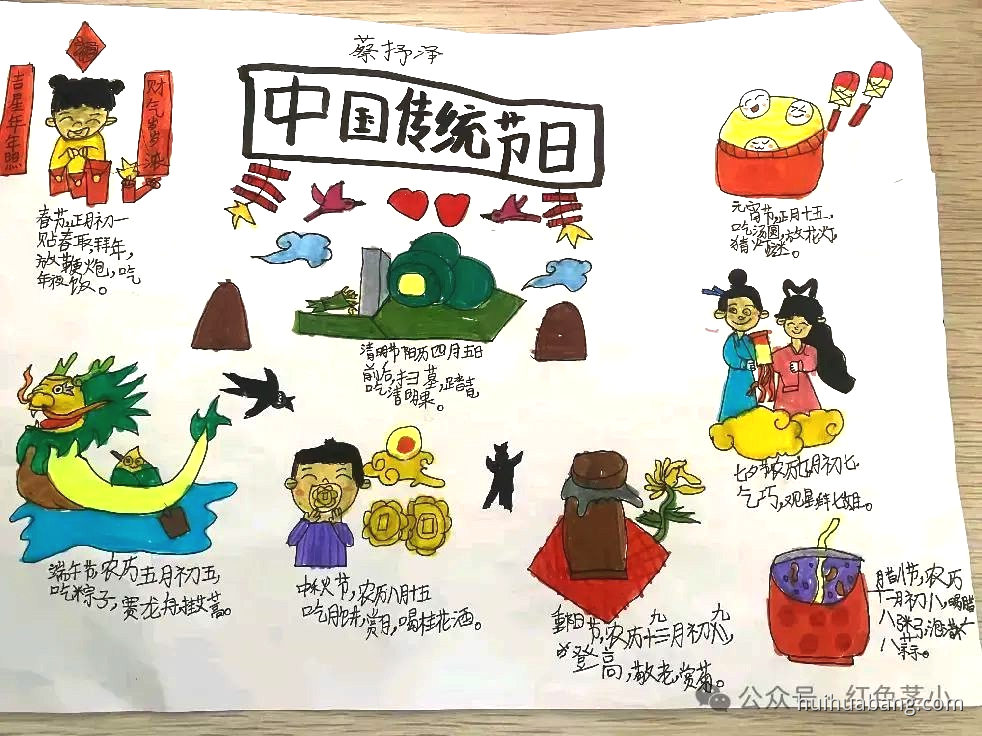 蔡抒泽
中国传统节日
福
吉星年年照
财气岁岁
春节,正月初一
贴春联,拜年,
放鞭炮,吃
年夜饭。
元宵节,正月十五,
吃汤圆,放花灯,
猜灯谜。
清明节阳历四月五日
前后,扫墓,踏青,
吃清明粿。
七夕节农历七月初七,
乞巧,观星
端午节,农历五月初五,
吃粽子,赛龙舟,挂艾蒿。
中秋火节,农历八月十五
吃月饼,赏月,喝桂花酒。
重阳节,农历九月初九,
登高,敬老,赏菊。
腊八节,农历
十二月初八,喝腊
八粥,泡腊
八蒜。
公众号·红色茎小
huihuabang.com